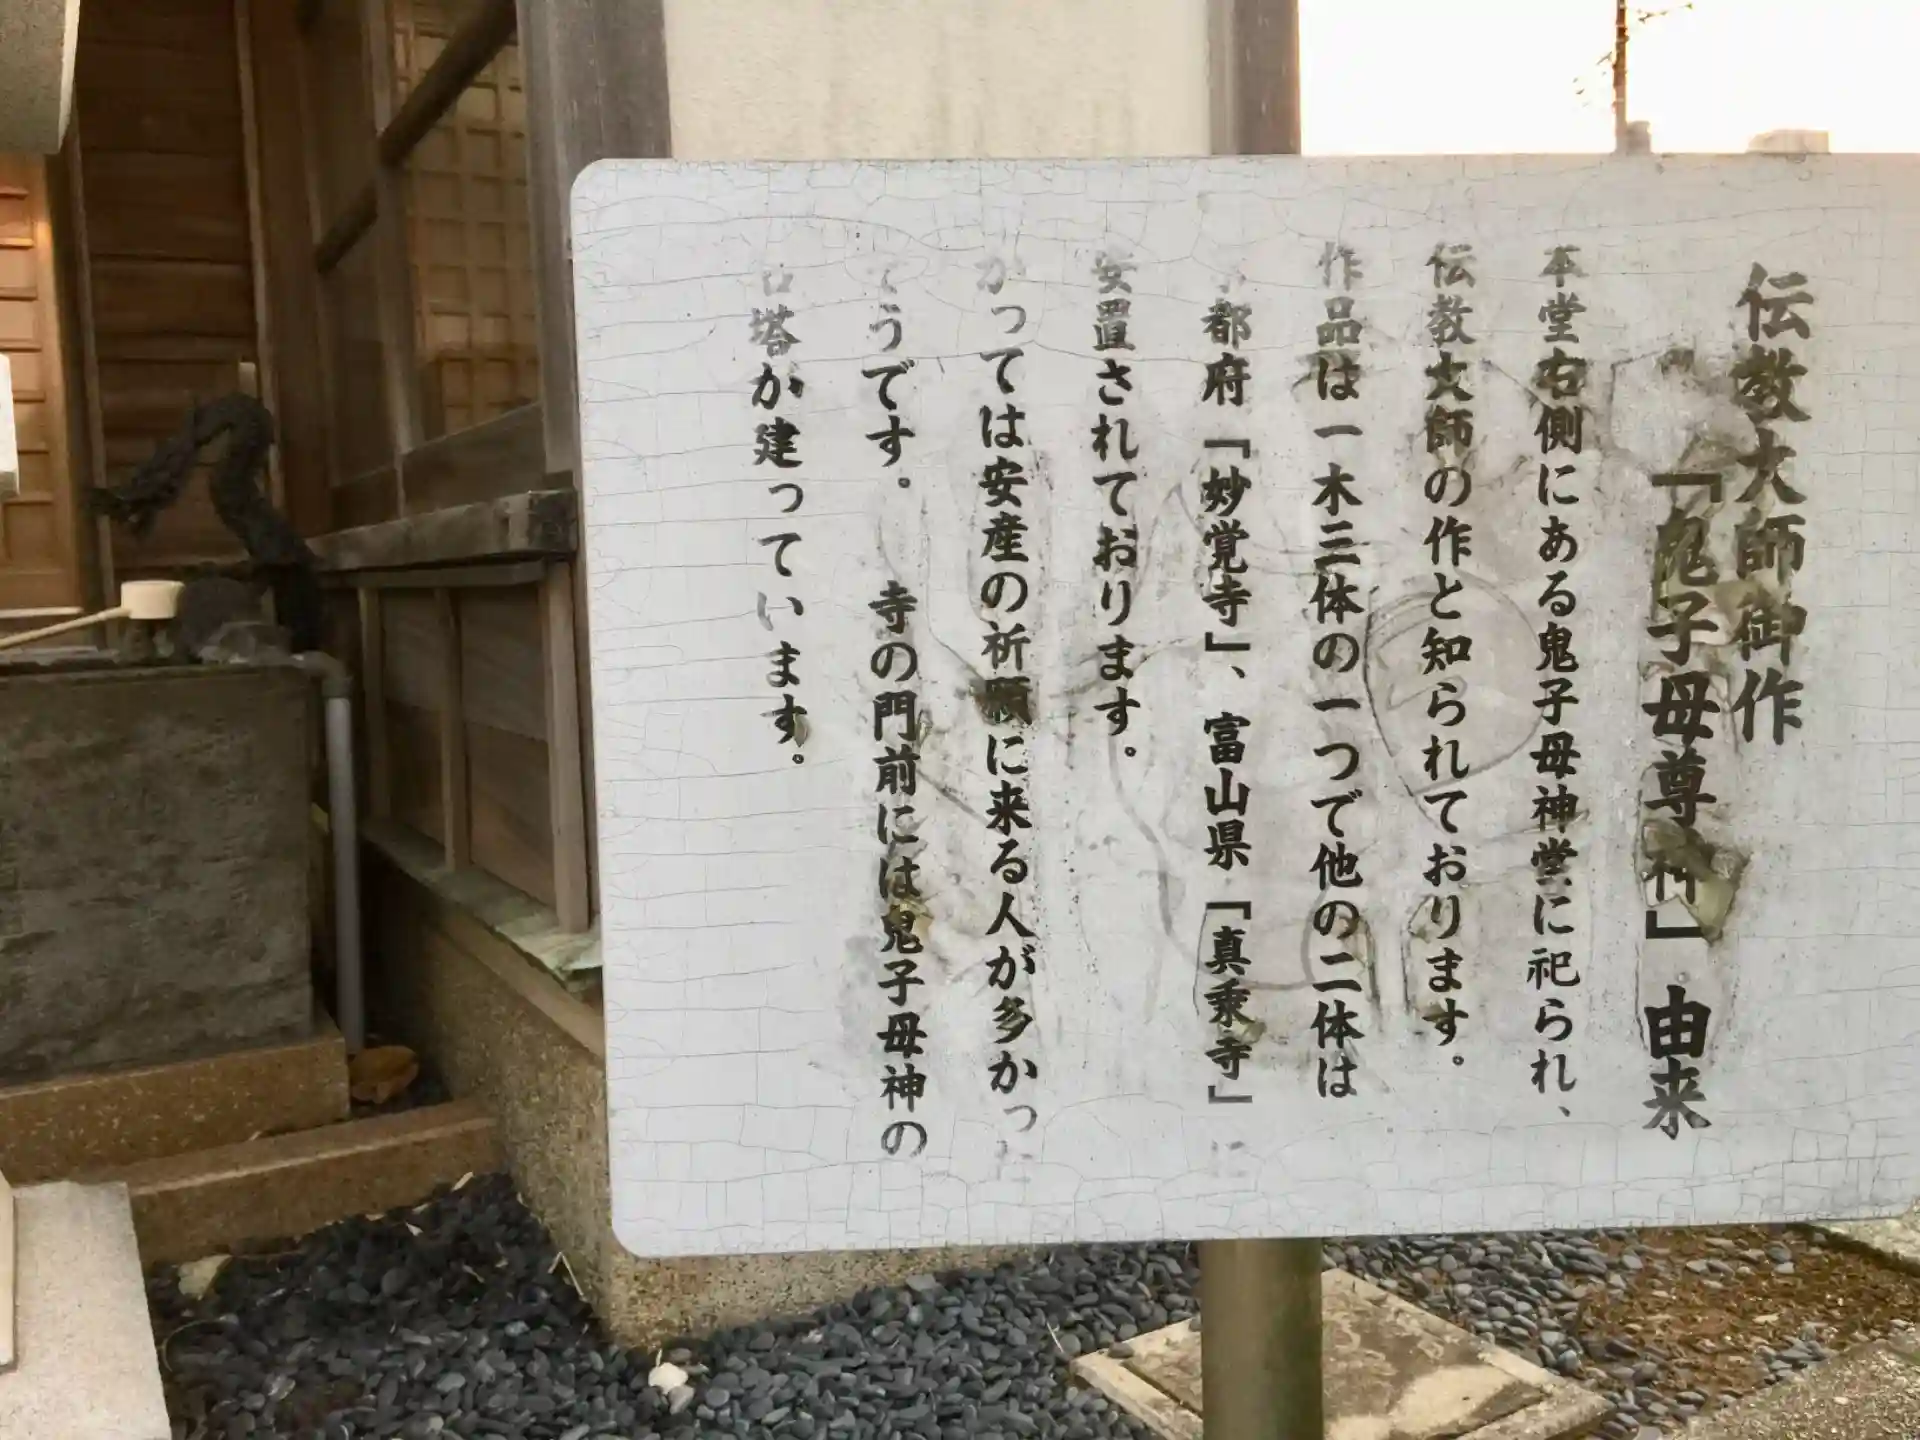 伝教大師御作
「鬼子母尊神」由来
本堂右側にある鬼子母神堂に祀られ、
伝教大師の作と知られております。
作品は一木三体の一つで他の二体は
都府「妙覚寺」、富山県「真乗寺」に
安置されております。
かっては安産の祈願に来る人が多かった
そうです。 寺の門前には鬼子母神の
石塔が建っています。